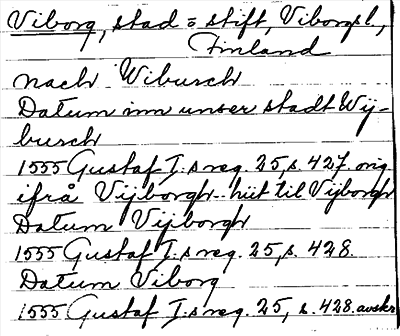 Viborg, stad o stift, Viborgs l,
Finland
nach Wibursch
Datum inn unser stadt Wij-
bursch
1555 Gustaf I:s reg. 25, s. 427. orig
ifrå Vijborgh hiit til Vijborgh
Datum Vijborgh
1555 Gustaf I:s reg. 25, s. 428.
Datum Viborg
1555 Gustaf I:s reg. 25, s. 428. avskr